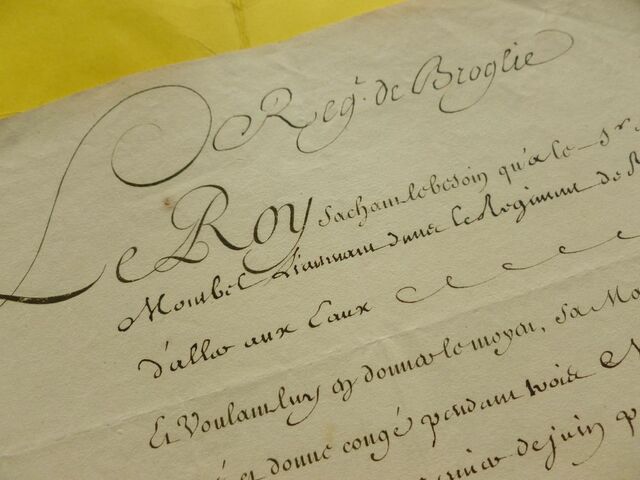 Regt. de Broglie
Le Roy sachant le besoin qu'a le Sr. de
Montbel Lieutenant dans le Regiment de
d'aller aux Eaux
Et Voulant luy en donner le moyen, Sa Ma
et donné congé pendant trois
de juin